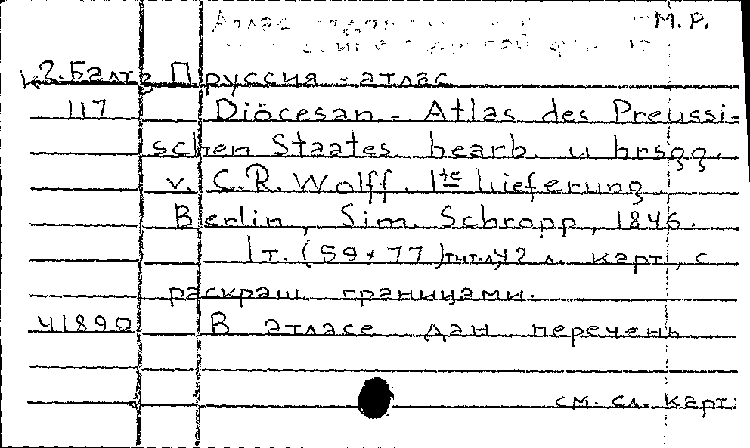 Атлас М.Р.
К2.Балт3 Пруссия - атлас
117 Diöcesan - Atlas des Preussi-
schen Staates bearb. u hrsgg.
v. C.R. Wolff. 1te Lieferung
Berlin, Sim. Schropp, 1846.
1 т. (59 x 77) тит.л, 2 л. карт, с
раскраш границами.
41890 В атласе дан перечень
см. сл. карт.